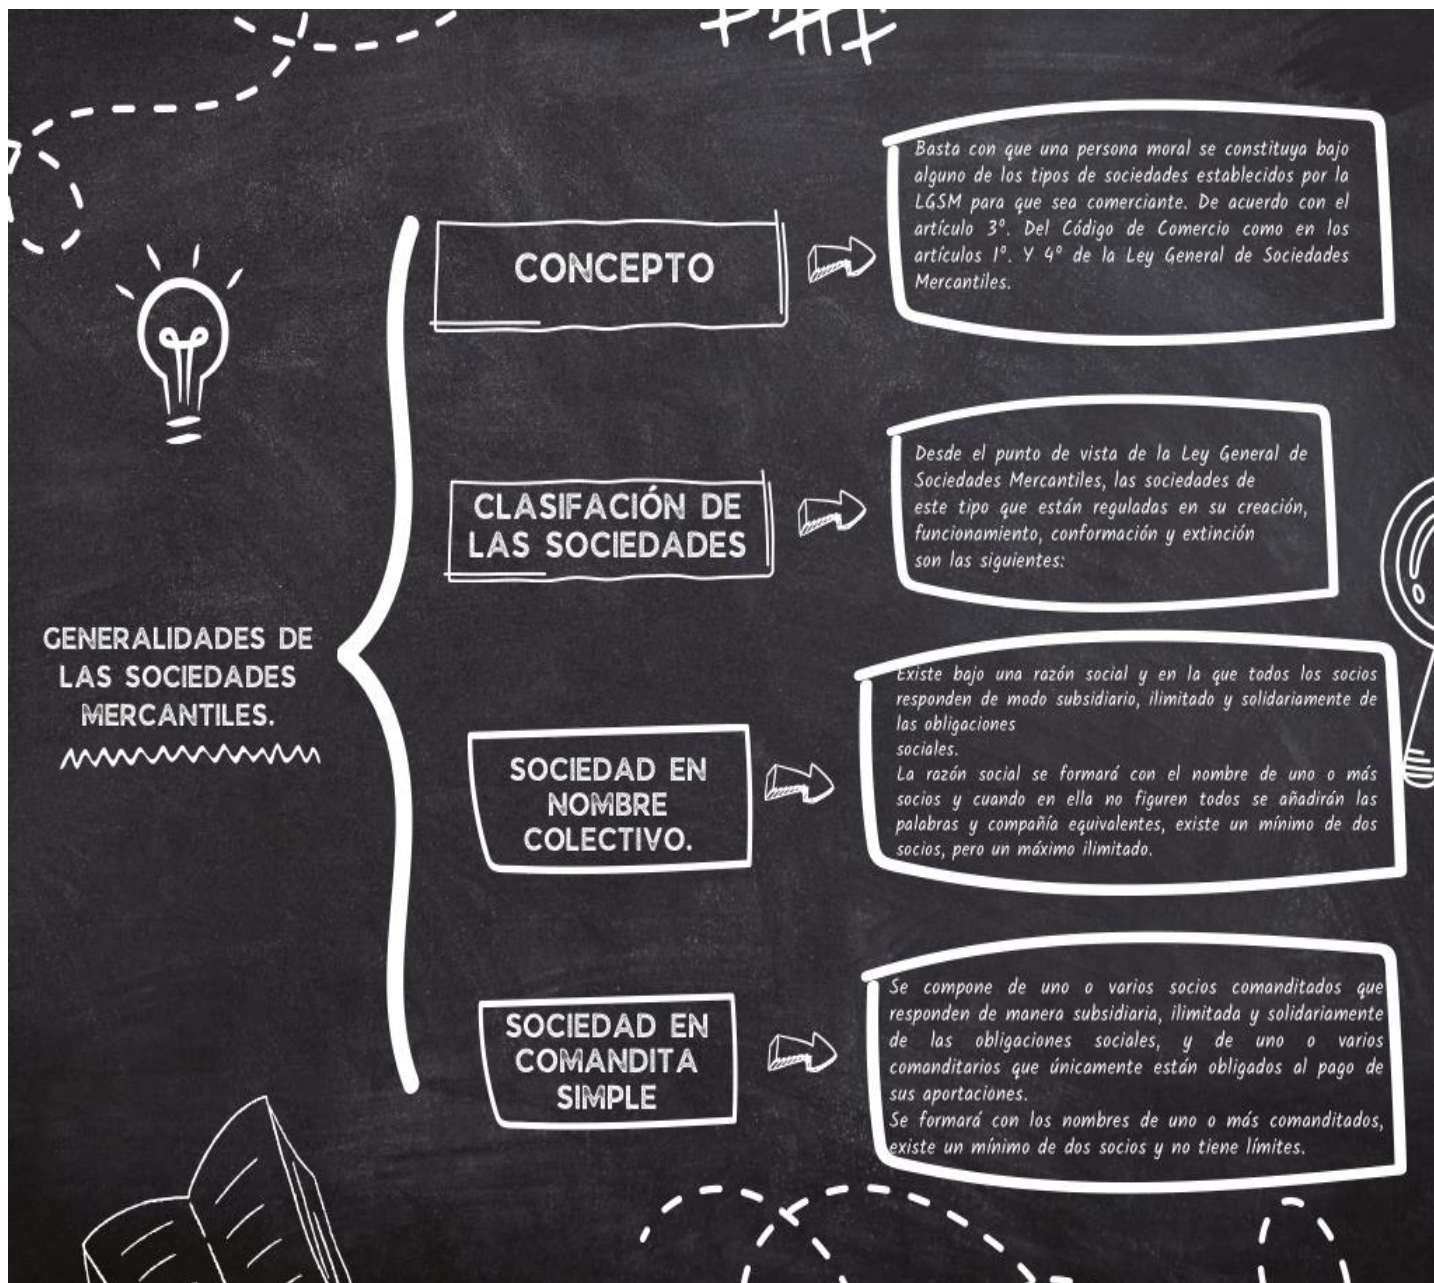 GENERALIDADES DE
LAS SOCIEDADES
MERCANTILES.
CONCEPTO
Basta con que una persona moral se constituya bajo
alguno de los tipos de sociedades establecidos por la
LGSM para que sea comerciante. De acuerdo con el
artículo 3º. Del Código de Comercio como en los
artículos 1º. Y 4º de la Ley General de Sociedades
Mercantiles.
CLASIFACIÓN DE
LAS SOCIEDADES
Desde el punto de vista de la Ley General de
Sociedades Mercantiles, las sociedades de
este tipo que están reguladas en su creación,
funcionamiento, conformación y extinción
son las siguientes:
SOCIEDAD EN
NOMBRE
COLECTIVO.
Existe bajo una razón social y en la que todos los socios
responden de modo subsidiario, ilimitado y solidariamente de
las obligaciones
sociales.
La razón social se formará con el nombre de uno o más
socios y cuando en ella no figuren todos se añadirán las
palabras y compañía equivalentes, existe un mínimo de dos
socios, pero un máximo ilimitado.
SOCIEDAD EN
COMANDITA
SIMPLE
Se compone de uno o varios socios comanditados que
responden de manera subsidiaria, ilimitada y solidariamente
de las obligaciones sociales, y de uno o varios
comanditarios que únicamente están obligados al pago de
sus aportaciones.
Se formará con los nombres de uno o más comanditados,
existe un mínimo de dos socios y no tiene límites.